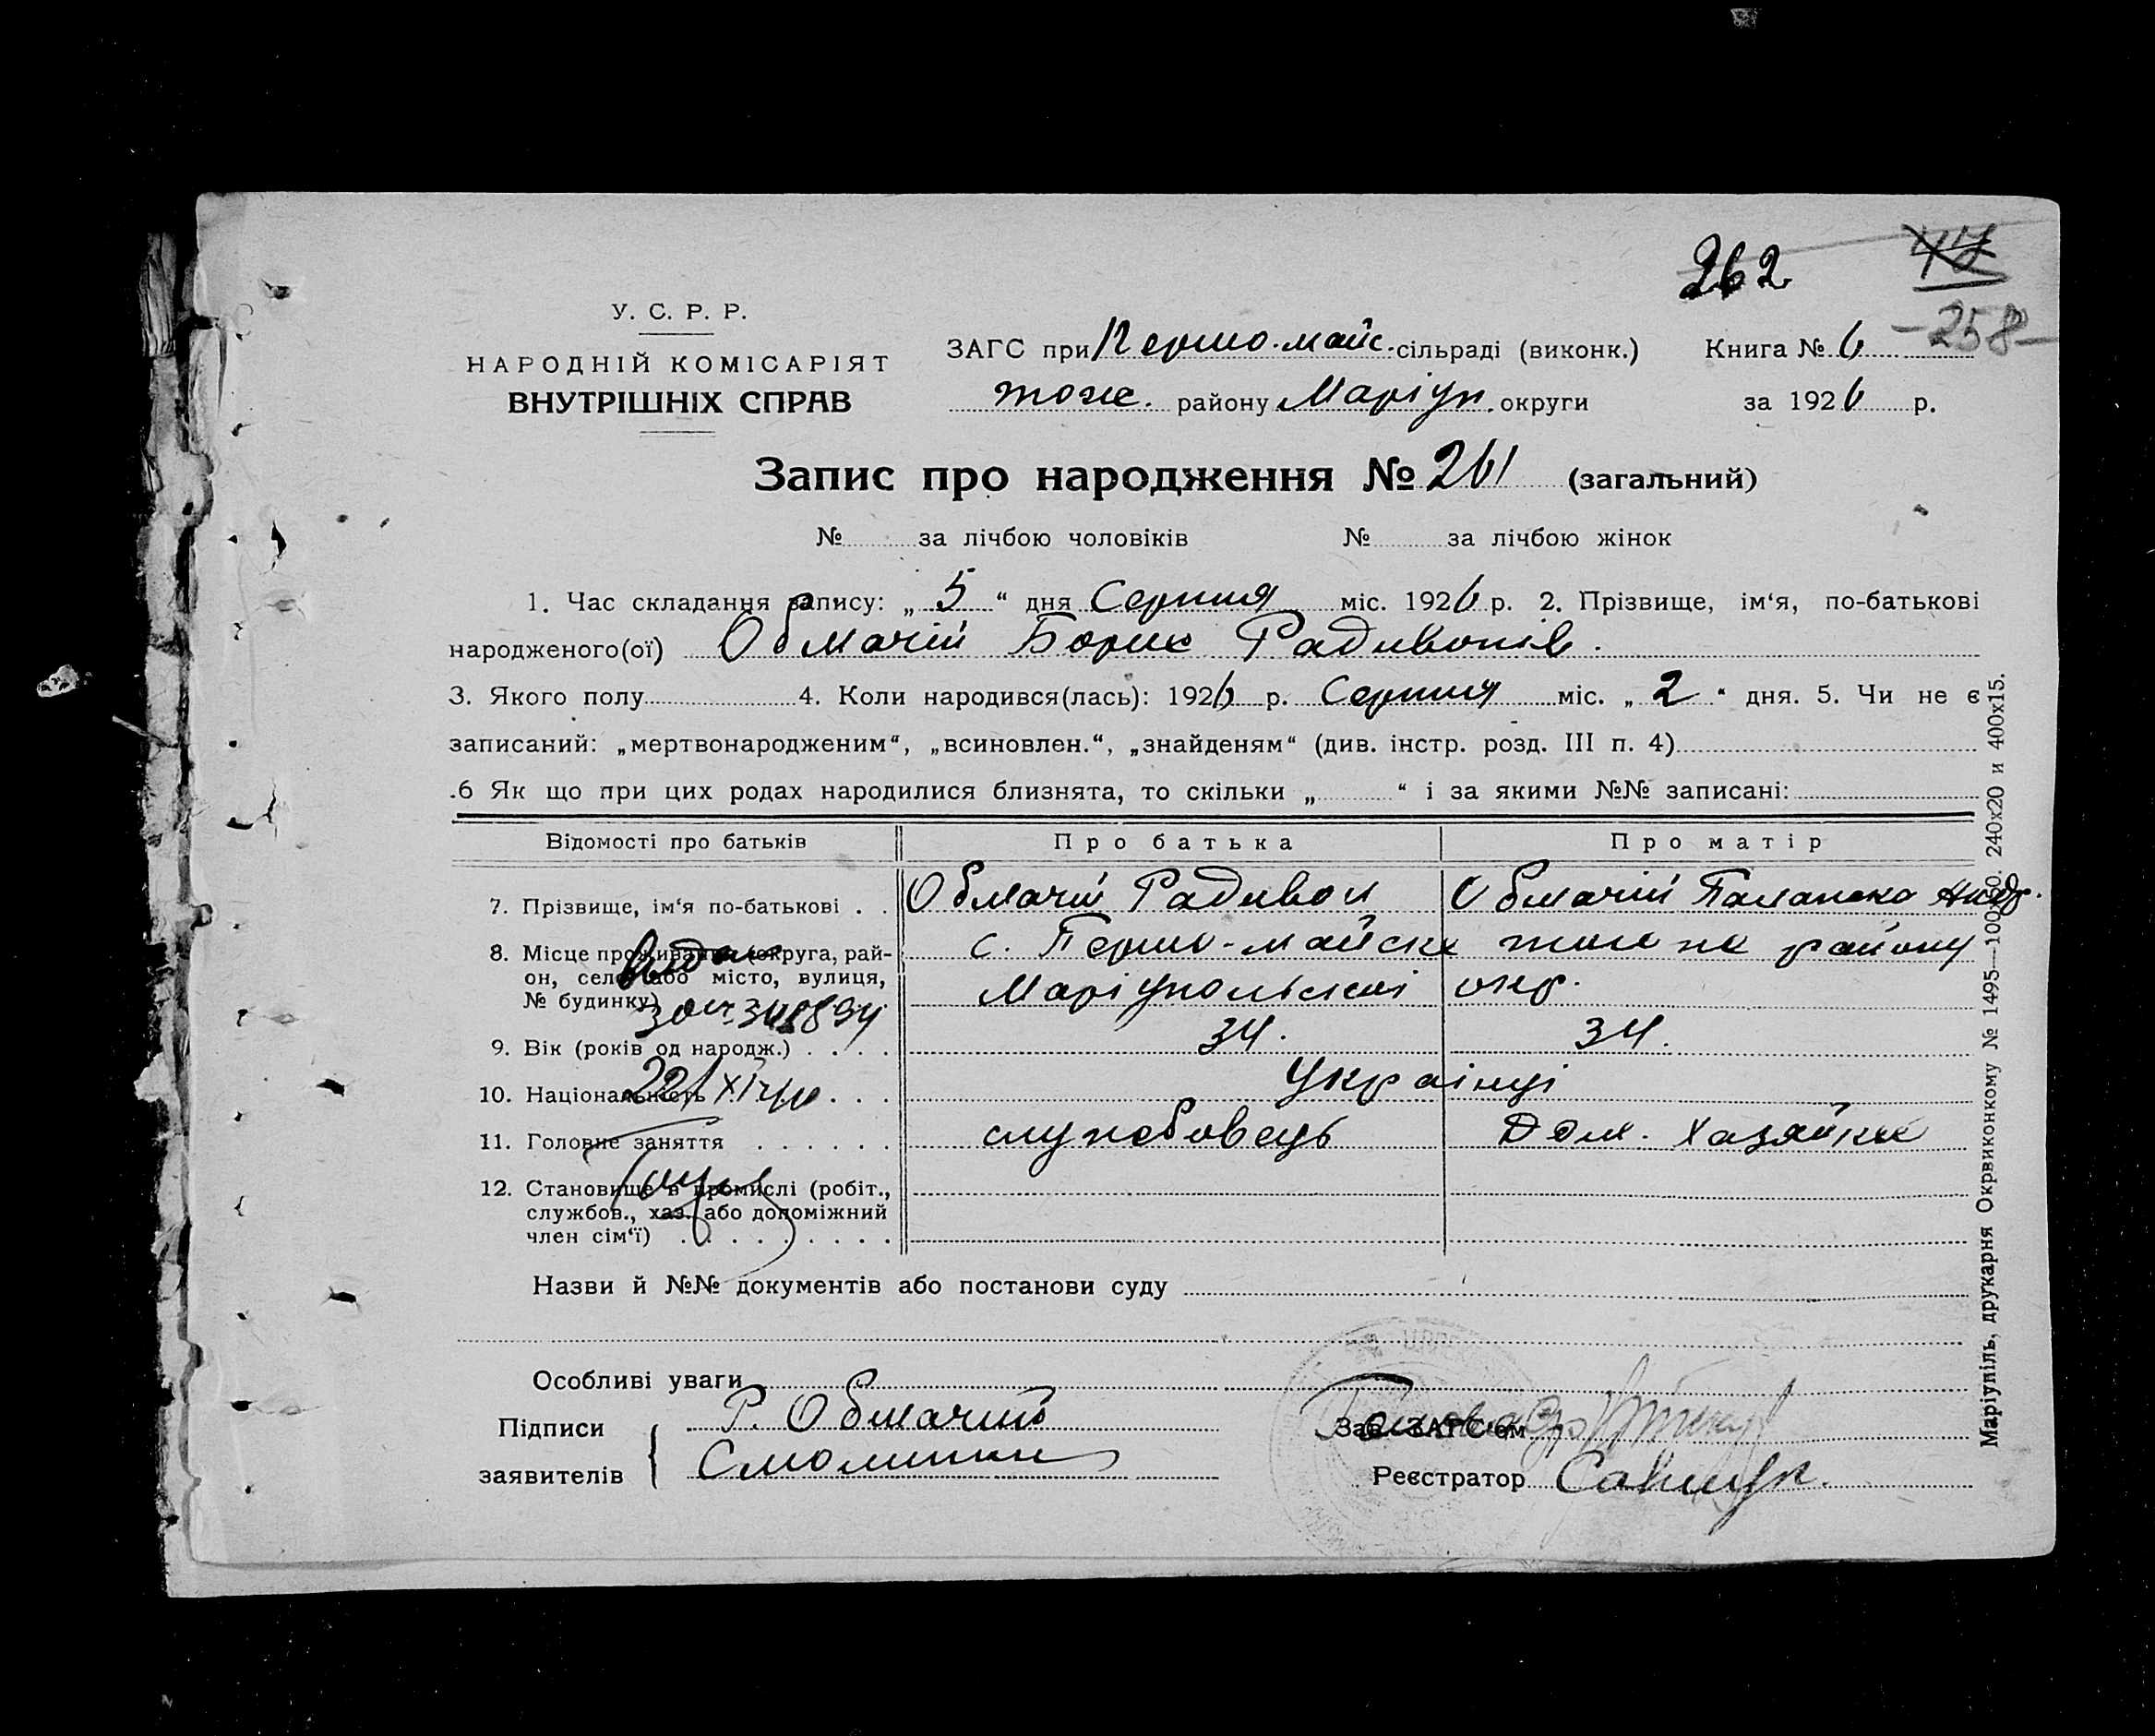 262
47
-258-
У. С. Р. Р.
НАРОДНІЙ КОМІСАРІЯТ
ВНУТРІШНІХ СПРАВ
ЗАГС при Першо-майс. сільраді (виконк.) Книга № 6
тож. району Маріуп. округи за 1926 р.
Запис про народження № 261 (загальний)
№ за лічбою чоловіків № за лічбою жінок
1. Час складання запису: „ 5 “ дня Серпня міс. 1926 р. 2. Прізвище, ім‘я, по-батькові
народженого(ої) Обмачій Борис Радивонів.
3. Якого полу 4. Коли народився(лась): 1926 р. Серпня міс. „ 2 “ дня. 5. Чи не є
записаний: „мертвонародженим“, „всиновлен.“, „знайденям“ (див. інстр. розд. III п. 4)
.6 Як що при цих родах народилися близнята, то скільки „ “ і за якими №№ записані:
Відомості про батьків Про батька Про матір
7. Прізвище, ім‘я по-батькові . . Обмачій Радивон Обмачій Палажка Андр.
8. Місце проживання (округа, рай-
он, село або місто, вулиця,
№ будинку)
с. Першо-майске того же району
Маріупольскої окр.
9. Вік (років од народж.) . . . . 34. 34.
10. Національність . . . Українці
11. Головне заняття . . . . . . службовець Дом. хазяйка
12. Становище в промислі (робіт.,
службов., хаз. або допоміжний
член сім‘ї) . . . . . . . . .
Видан
221 XI 40
Назви й №№ документів або постанови суду
Особливі уваги
Підписи Р. Обмачий Зав. ЗАГС‘ом
заявителів Реєстратор
Маріупіль, друкарня Окрвиконкому № 1495—100х50. 240х20 и 400х15.